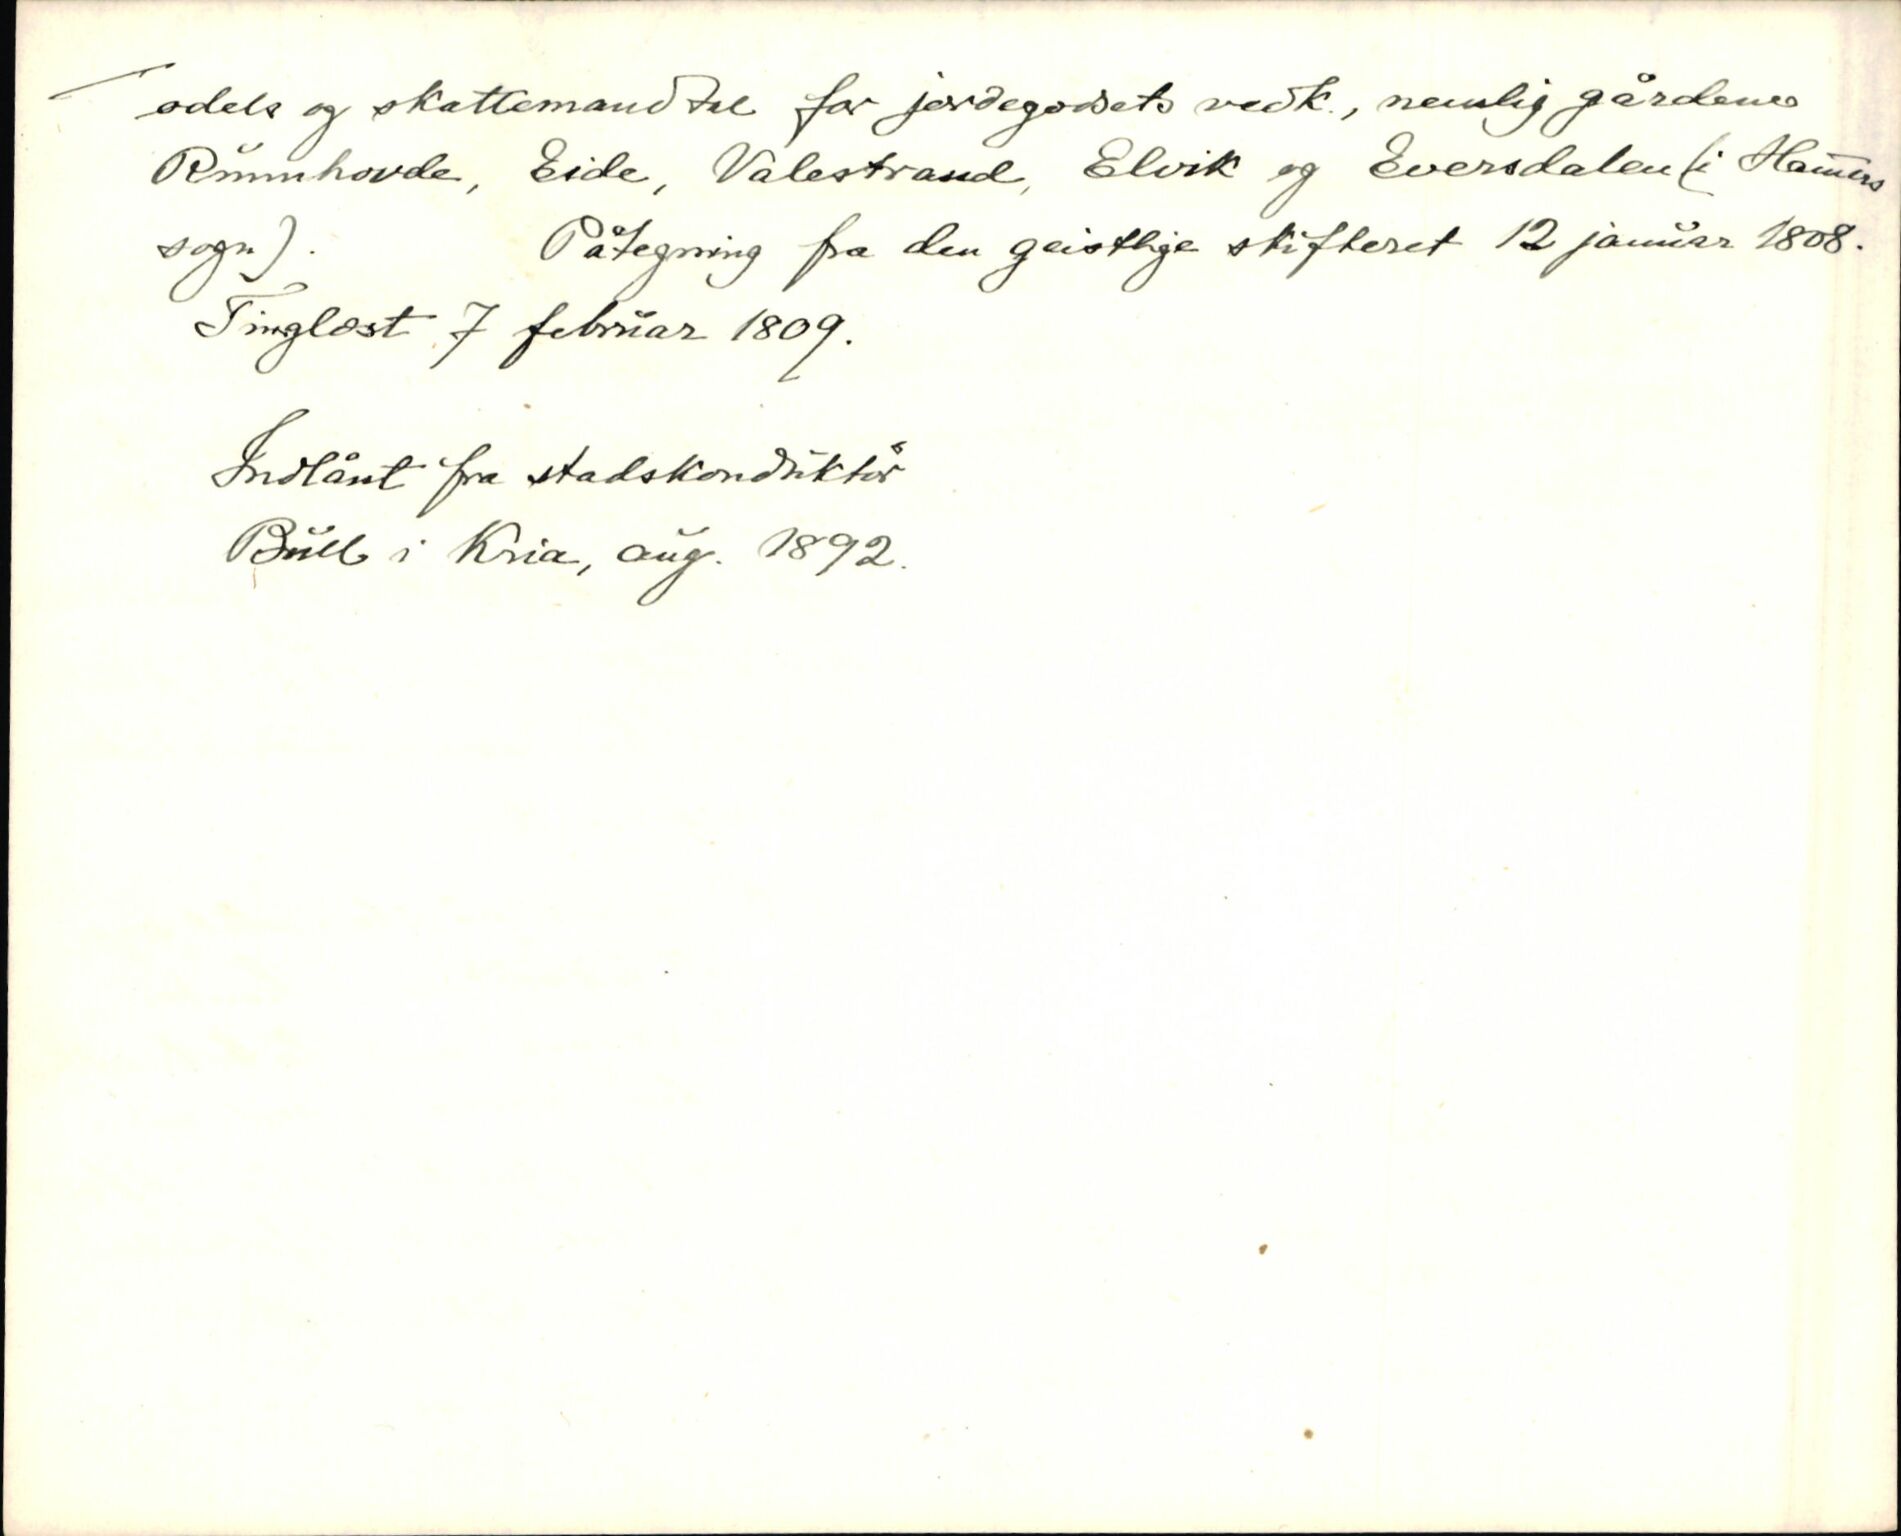 odels og skattemandtal for jordegodsets vedk., nemlig gårdene
Runnhovde, Eide, Valestrand, Elvik og Eversdalen (i Ham̅ers
sogn). Påtegning fra den geistlige skifteret 12 januar 1808.
Tinglæst 7 februar 1809.
Indlånt fra stadskonduktör
Bull i Kria, aug. 1892.